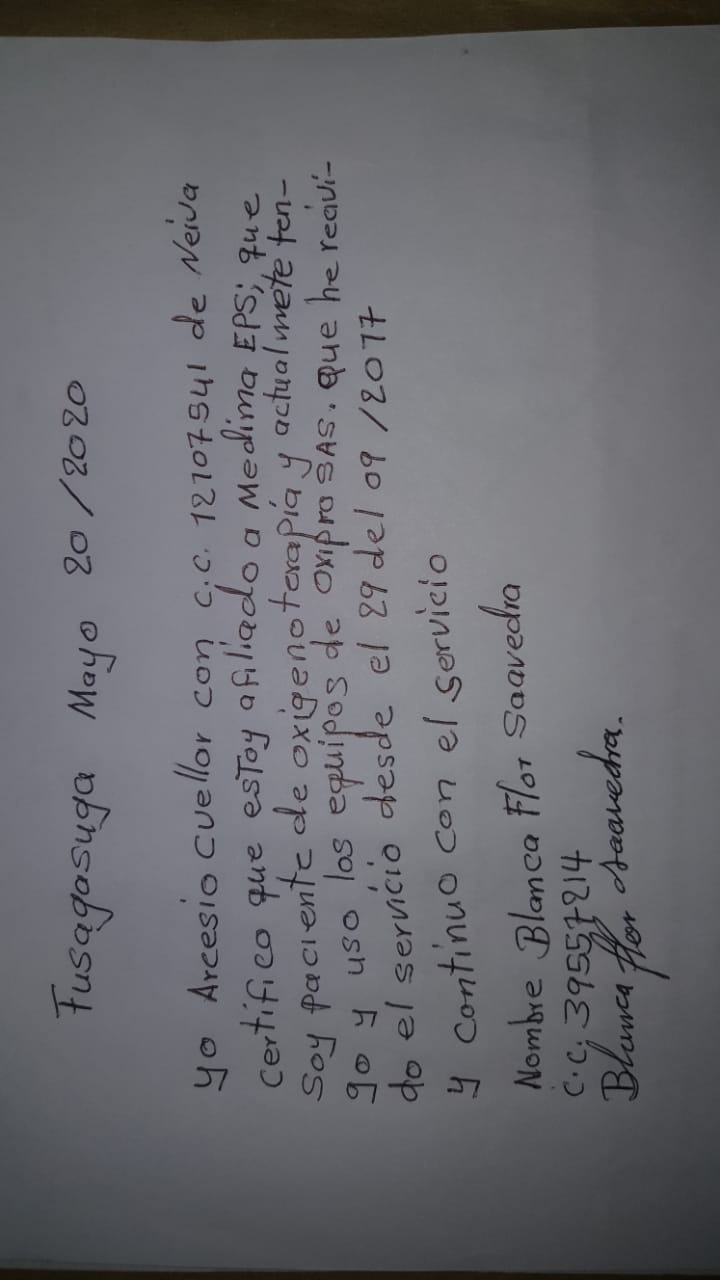 Fusagasuga Mayo 20/2020
yo Arcesio cuellor con c.c. 12107541 de Neiva
certifico que estoy afiliado a Medima EPS; que
Soy paciente de oxigenoterapia y actualmete ten-
go y uso los equipos de oxipro SAS. que he recivi-
do el servicio desde el 29 del 09/2017
y continuo con el servicio
Nombre Blanca Flor Saavedra
c.c. 39557214
Blanca flor saavedra.